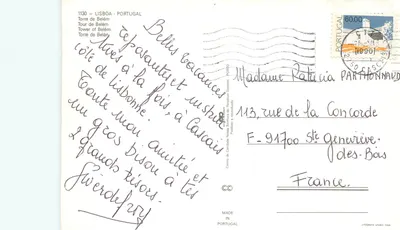 1130 - LISBOA - PORTUGAL
Torre de Belém
Tour de Belém
Tower of Belém
Torre de Belém
Belles vacances
reposantes et instruc
tives à la fois, à Cascais
côté de Lisbonne.
Toute mon amitié et
un gros bisou à tes
2 grands trésors.
PORTUGAL
60.00
Madame Patricia PARTHONNAUD
113, rue de la Concorde
F-91700 Ste Geneviève
des-Bois
France.
MADE
IN
PORTUGAL